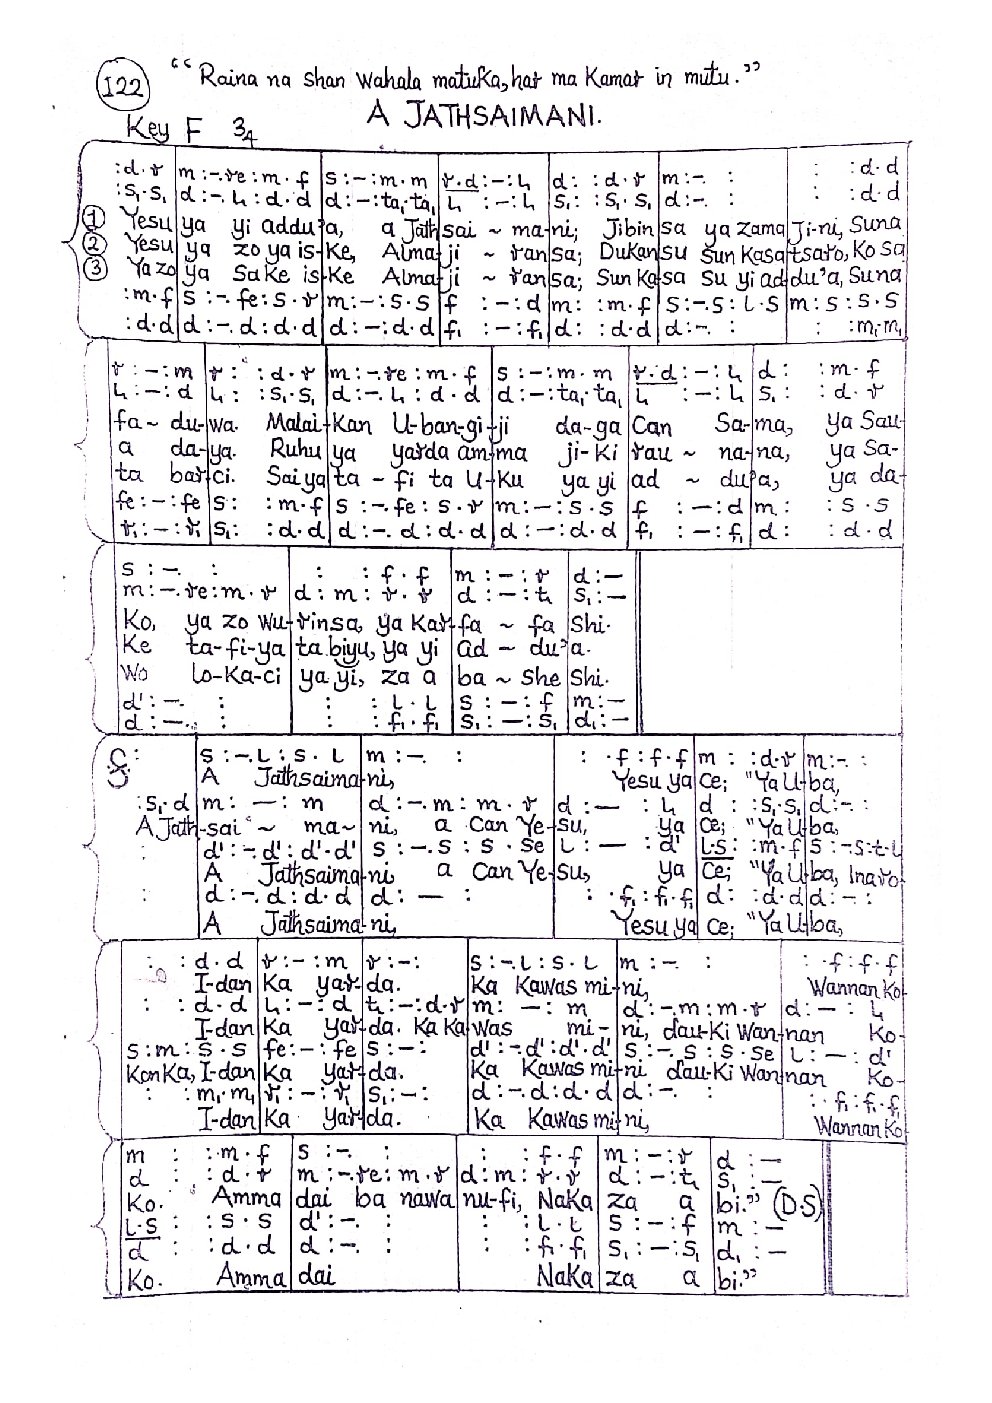 122 “Raina na shan Wahala matuƙa, har ma Kamar in mutu.”
A JATHSAIMANI.
Key F 3/4
:d.r | m :-.re : m.f | s :- : m.m | r.d :- : l₁ | d : : d.r | m :-. : | : : d.d
:s₁.s₁ | d :-. l₁ : d.d | d :- : ta₁.ta₁ | l₁ :- : l₁ | s₁ : : s₁.s₁ | d :-. : | : : d.d
① Yesu | ya yi addu | a, a Jath | sai ~ ma | ni; Jibin | sa ya zama | Ji-ni, Suna
② Yesu | ya zo ya is | Ke, Alma | ji ~ ran | sa; Dukan | su sun Kasa | tsaro, Ko Sa
③ Ya zo | ya Sake is | Ke Alma | ji ~ ran | sa; Sun Ka | sa su yi ad | du'a, Suna
:m.f | s :-. fe : s.r | m :- : s.s | f :- : d | m : : m.f | s :-. s : l.s | m : s : s.s
:d.d | d :-. d : d.d | d :- : d.d | f₁ :- : f₁ | d : : d.d | d :-. : | : : m₁.m₁
r :- : m | r : : d.r | m :-.re : m.f | s :- : m.m | r.d :- : l₁ | d : : m.f
l₁ :- : d | l₁ : : s₁.s₁ | d :-. l₁ : d.d | d :- : ta₁.ta₁ | l₁ :- : l₁ | s₁ : : d.r
fa ~ du- | wa. Malai- | Kan U-ban-gi- | ji da-ga | Can Sa- | ma, ya Sau-
a da- | ya. Ruhu | ya yarda am- | ma ji-Ki | rau ~ na- | na, ya Sa-
ta bar- | ci. Sai ya | ta ~ fi ta U- | Ku ya yi | ad ~ du' | a, ya da-
fe :- : fe | s : : m.f | s :-. fe : s.r | m :- : s.s | f :- : d | m : : s.s
r₁ :- : r₁ | s₁ : : d.d | d :-. d : d.d | d :- : d.d | f₁ :- : f₁ | d : : d.d
s :-. : | : : f.f | m :- : r | d :-
m :-. re : m.r | d : m : r.r | d :- : t₁ | s₁ :-
Ko, ya zo Wu- | rinsa, ya Kar- | fa ~ fa | Shi.
Ke ta-fi-ya | ta biyu, ya yi | ad ~ du' | a.
Wo lo-Ka-ci | ya yi, za a | ba ~ She | Shi.
d' :-. : | : : l.l | s :- : f | m :-
d :-. : | : : f₁.f₁ | s₁ :- : s₁ | d₁ :-
: | s :-. l : s.l | m :-. : | : .f : f.f | m : : d.r | m :-. :
A Jathsaima- | ni, | Yesu ya | Ce; | “Ya U- | ba,
:s₁.d | m : - : m | d :-. m : m.r | d :- : l₁ | d : : s₁.s₁ | d :-. :
A Jath- | sai ~ ma ~ | ni, a Can Ye- | su, ya | Ce; “Ya U- | ba,
: | d' :-. d' : d'.d' | s :-. s : s.se | l :- : d' | l.s : : m.f | s :-. s : t.l
A Jathsaima- | ni a Can Ye- | su, ya | Ce; “Ya U- | ba, Inaro-
: | d :-. d : d.d | d :- : | : .f₁ : f₁.f₁ | d : : d.d | d :- :
A Jathsaima- | ni, | Yesu ya | Ce; “Ya U- | ba,
: : d.d | r :- : m | r :- : | s :-. l : s.l | m :-. : | : .f : f.f
I-dan | Ka yar- | da. | Ka Kawas mi- | ni, | Wannan Ko-
: : d.d | l₁ :- : d | t₁ :- : d.r | m : - : m | d :-. m : m.r | d :- : l₁
I-dan | Ka yar- | da. Ka Ka- | was mi- | ni, ɗau-Ki Wan- | nan Ko-
s : m : s.s | fe :- : fe | s :- : | d' :-. d' : d'.d' | s :-. s : s.se | l :- : d'
Kon Ka, I-dan | Ka yar- | da. | Ka Kawas mi- | ni ɗau-Ki Wan- | nan Ko-
: : m₁.m₁ | r₁ :- : r₁ | s₁ :- : | d :-. d : d.d | d :-. : | : .f₁ : f₁.f₁
I-dan | Ka yar- | da. | Ka Kawas mi- | ni, | Wannan Ko-
m : : m.f | s :-. : | : : f.f | m :- : r | d :-
d : : d.r | m :-. re : m.r | d : m : r.r | d :- : t₁ | s₁ :-
Ko. Amma | dai ba nawa | nu-fi, NaKa | za a | bi.” (D.S)
l.s : : s.s | d' :-. : | : : l.l | s :- : f | m :-
d : : d.d | d :-. : | : : f₁.f₁ | s₁ :- : s₁ | d₁ :-
Ko. Amma | dai | NaKa | za a | bi.”